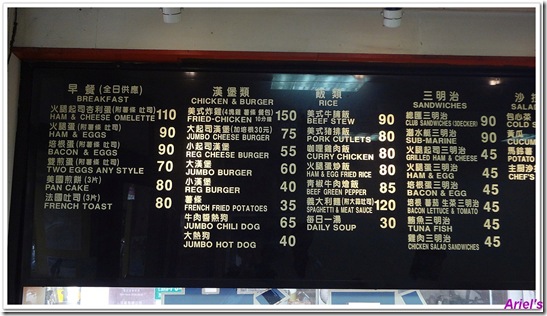 早餐 (全日供應)
BREAKFAST
火腿起司杏利蛋(附薯條 吐司) 110
HAM & CHEESE OMELETTE
火腿蛋 (附薯條 吐司) 90
HAM & EGGS
培根蛋 (附薯條 吐司) 90
BACON & EGGS
雙煎蛋(附薯條 吐司) 70
TWO EGGS ANY STYLE
美國煎餅 (3片) 80
PAN CAKE
法國吐司 (3片) 80
FRENCH TOAST
漢堡類
CHICKEN & BURGER
美式炸雞 (4塊雞 薯條 餐包) 150
FRIED-CHICKEN 10分鐘
大起司漢堡 (加培根30元) 75
JUMBO CHEESE BURGER
小起司漢堡 55
REG CHEESE BURGER
大漢堡 60
JUMBO BURGER
小漢堡 40
REG BURGER
薯條 35
FRENCH FRIED POTATOES
牛肉醬熱狗 65
JUMBO CHILI DOG
大熱狗 40
JUMBO HOT DOG
飯類
RICE
美式牛腩飯 90
BEEF STEW
美式豬排飯 80
PORK CUTLETS
咖哩雞肉飯 80
CURRY CHICKEN
火腿蛋炒飯 80
HAM & EGG FRIED RICE
青椒牛肉燴飯 85
BEEF GREEN PEPPER
義大利麵(附大蒜吐司) 120
SPAGHETTI & MEAT SAUCE
每日一湯 30
DAILY SOUP
三明治
SANDWICHES
總匯三明治 90
CLUB SANDWICHES (3DECKER)
潛水艇三明治 90
SUB-MARINE
火腿起司三明治 45
GRILLED HAM & CHEESE
火腿蛋三明治 45
HAM & EGG
培根蛋三明治 45
BACON & EGG
培根 蕃茄 生菜三明治 45
BACON LETTUCE & TOMATO
鮪魚三明治 45
TUNA FISH
雞肉三明治 45
CHICKEN SALAD SANDWICHES
沙拉
SALA
包心菜
COLD S
黃瓜
CUCUM
馬鈴薯
POTATO
主廚沙
CHEF'S
Ariel's